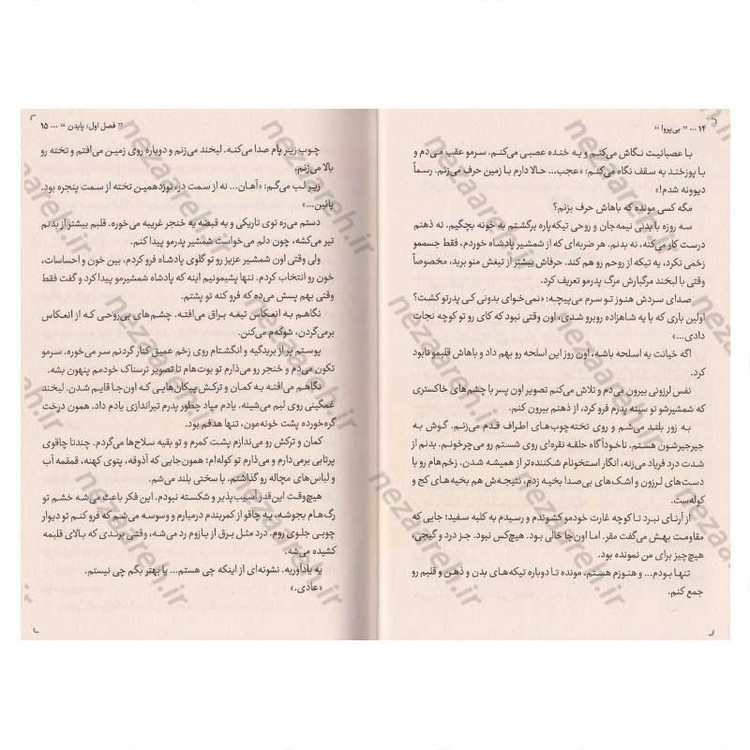 ۱۴ ... " بی‌پروا "
با عصبانیت نگاش می‌کنم و یه خنده عصبی می‌کنم. سرمو عقب می‌دم و
با پوزخند به سقف نگاه می‌کنم: «عجب... حالا دارم با زمین حرف می‌زنم. رسماً
دیوونه شدم!»
مگه کسی مونده که باهاش حرف بزنم؟
سه روزه با بدنی نیمه‌جان و روحی تیکه‌پاره برگشتم به خونه بچگیم. نه ذهنم
درست کار می‌کنه، نه بدنم. هر ضربه‌ای که از شمشیر پادشاه خوردم، فقط جسممو
زخمی نکرد، یه تیکه از روحم رو هم کند. حرفاش بیشتر از تیغش منو برید، مخصوصاً
وقتی با لبخند مرگبارش مرگ پدرمو تعریف کرد.
صدای سردش هنوز تو سرم می‌پیچه: «نمی‌خوای بدونی کی پدرتو کشت؟
اولین باری که با یه شاهزاده روبرو شدی، اون وقتی نبود که کای رو تو کوچه نجات
دادی...»
اگه خیانت یه اسلحه باشه، اون روز این اسلحه رو بهم داد و باهاش قلبمو نابود
کرد.
نفس لرزونی بیرون می‌دم و تلاش می‌کنم تصویر اون پسر با چشم‌های خاکستری
که شمشیرشو تو سینه پدرم فرو کرد، از ذهنم بیرون کنم.
به زور بلند می‌شم و روی تخته‌چوب‌های اطراف قدم می‌زنم. گوش به
جیرجیرشون هستم. ناخودآگاه حلقه نقره‌ای روی شستم رو می‌چرخونم. بدنم از
شدت درد فریاد می‌زنه، انگار استخونام شکننده‌تر از همیشه شدن. زخم‌هام رو با
دست‌های لرزون و اشک‌های بی‌صدا بخیه زدم، نتیجه‌ش هم بخیه‌های کج و
کوله‌ست.
از آرنای نبرد تا کوچه غارت خودمو کشوندم و رسیدم به کلبه سفید؛ جایی که
مقاومت بهش می‌گفت مقر. اما اون‌جا خالی بود. هیچ‌کس نبود. جز درد و گیجی،
هیچ‌چیز برای من نمونده بود.
تنها بودم... و هنوزم هستم، مونده تا دوباره تیکه‌های بدن و ذهن و قلبم رو
جمع کنم.
" فصل اول: پایدن " ... ۱۵
چوب زیر پام صدا می‌کنه. لبخند می‌زنم و دوباره روی زمین می‌افتم و تخته رو
بالا می‌زنم.
زیر لب می‌گم: «آهان... نه از سمت در، نوزدهمین تخته از سمت پنجره بود.
پائین...»
دستم می‌ره توی تاریکی و یه قبضه یه خنجر غریبه می‌خوره. قلبم بیشتر از بدنم
تیر می‌کشه، چون دلم می‌خواست شمشیر پدرمو پیدا کنم.
ولی وقتی اون شمشیر عزیز رو تو گلوی پادشاه فرو کردم، بین خون و احساسات،
خون رو انتخاب کردم. تنها پشیمونیم اینه که پادشاه شمشیرمو پیدا کرد و گفت فقط
وقتی بهم پسش می‌ده که فرو کنه تو پشتم.
نگاهم به انعکاس تیغه براق می‌افته. چشم‌های بی‌روحی که از انعکاس
برمی‌گردن، شوکه‌م می‌کنن.
پوستم پر از بریدگیه و انگشتام روی زخم عمیق کنار گردنم سر می‌خوره. سرمو
تکون می‌دم و خنجر رو می‌ذارم تو بوت‌هام تا تصویر ترسناک خودمم پنهون بشه.
نگاهم می‌افته به کمان و ترکش پیکان‌هایی که اون‌جا قایم شدن. لبخند
غمگینی روی لبم می‌شینه. یادم میاد چطور پدرم تیراندازی یادم داد، همون درخت
گره‌خورده پشت خونه‌مون، تنها هدفم بود.
کمان و ترکش رو می‌ندازم پشت کمرم و تو بقیه سلاح‌ها می‌گردم. چندتا چاقوی
پرتابی برمی‌دارم و می‌ذارم تو کوله‌ام؛ همون‌جایی که آذوقه، پتوی کهنه، قمقمه آب
و لباس‌های مچاله رو گذاشتم. با سختی بلند می‌شم.
هیچ‌وقت این‌قدر آسیب‌پذیر و شکسته نبودم. این فکر باعث می‌شه خشم تو
رگ‌هام بجوشه، یه چاقو از کمربندم درمیارم و وسوسه می‌شم که فرو کنم تو دیوار
چوبی جلوی روم. درد مثل برق از بازوم رد می‌شه، وقتی برندی که بالای قلبمه
کشیده می‌شه.
یه یادآوریه. نشونه‌ای از اینکه چی هستم... یا بهتر بگم چی نیستم.
«عادی.»
nezaareh.ir